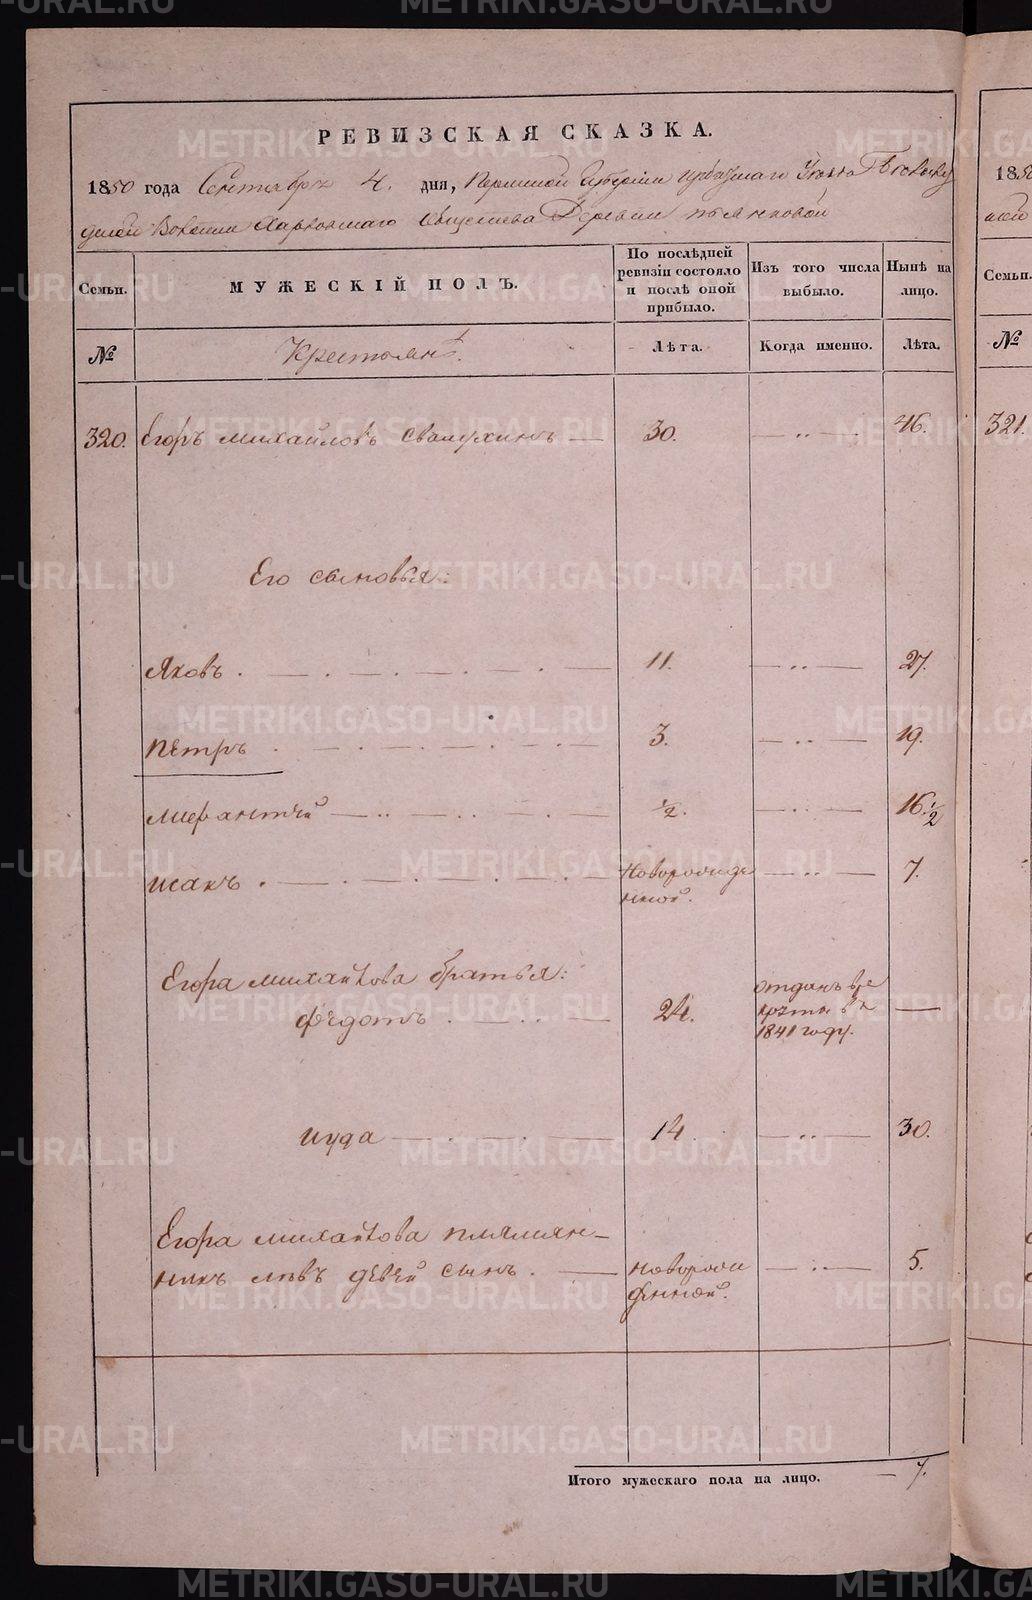 РЕВИЗСКАЯ СКАЗКА.
1850 года Сентября 4. дня, Пермской Губернии Ирбитскаго Уезда
Волости Харловскаго Общества Деревни
Семьи.
МУЖЕСКІЙ ПОЛЪ.
По послѣдней ревизіи состояло и послѣ оной прибыло.
Изъ того числа выбыло.
Нынѣ на лицо.
№ Крестьянъ. Лѣта. Когда именно. Лѣта.
320. Егоръ Михайловъ 30. 46.
Его сыновья:
Яковъ 11. 27.
Петръ 3. 19.
½. 16½
Исакъ Новорожде 7.
нной.
Егора Михайлова братья:
Федотъ 24. отданъ в ре
круты въ
1841 году.
Иуда 14 30.
Егора Михайлова племян-
никъ девей сынъ новорож 5.
денной.
Итого мужескаго пола на лицо. 7.
185
Семьи.
№
321.
METRIKI.GASO-URAL.RU